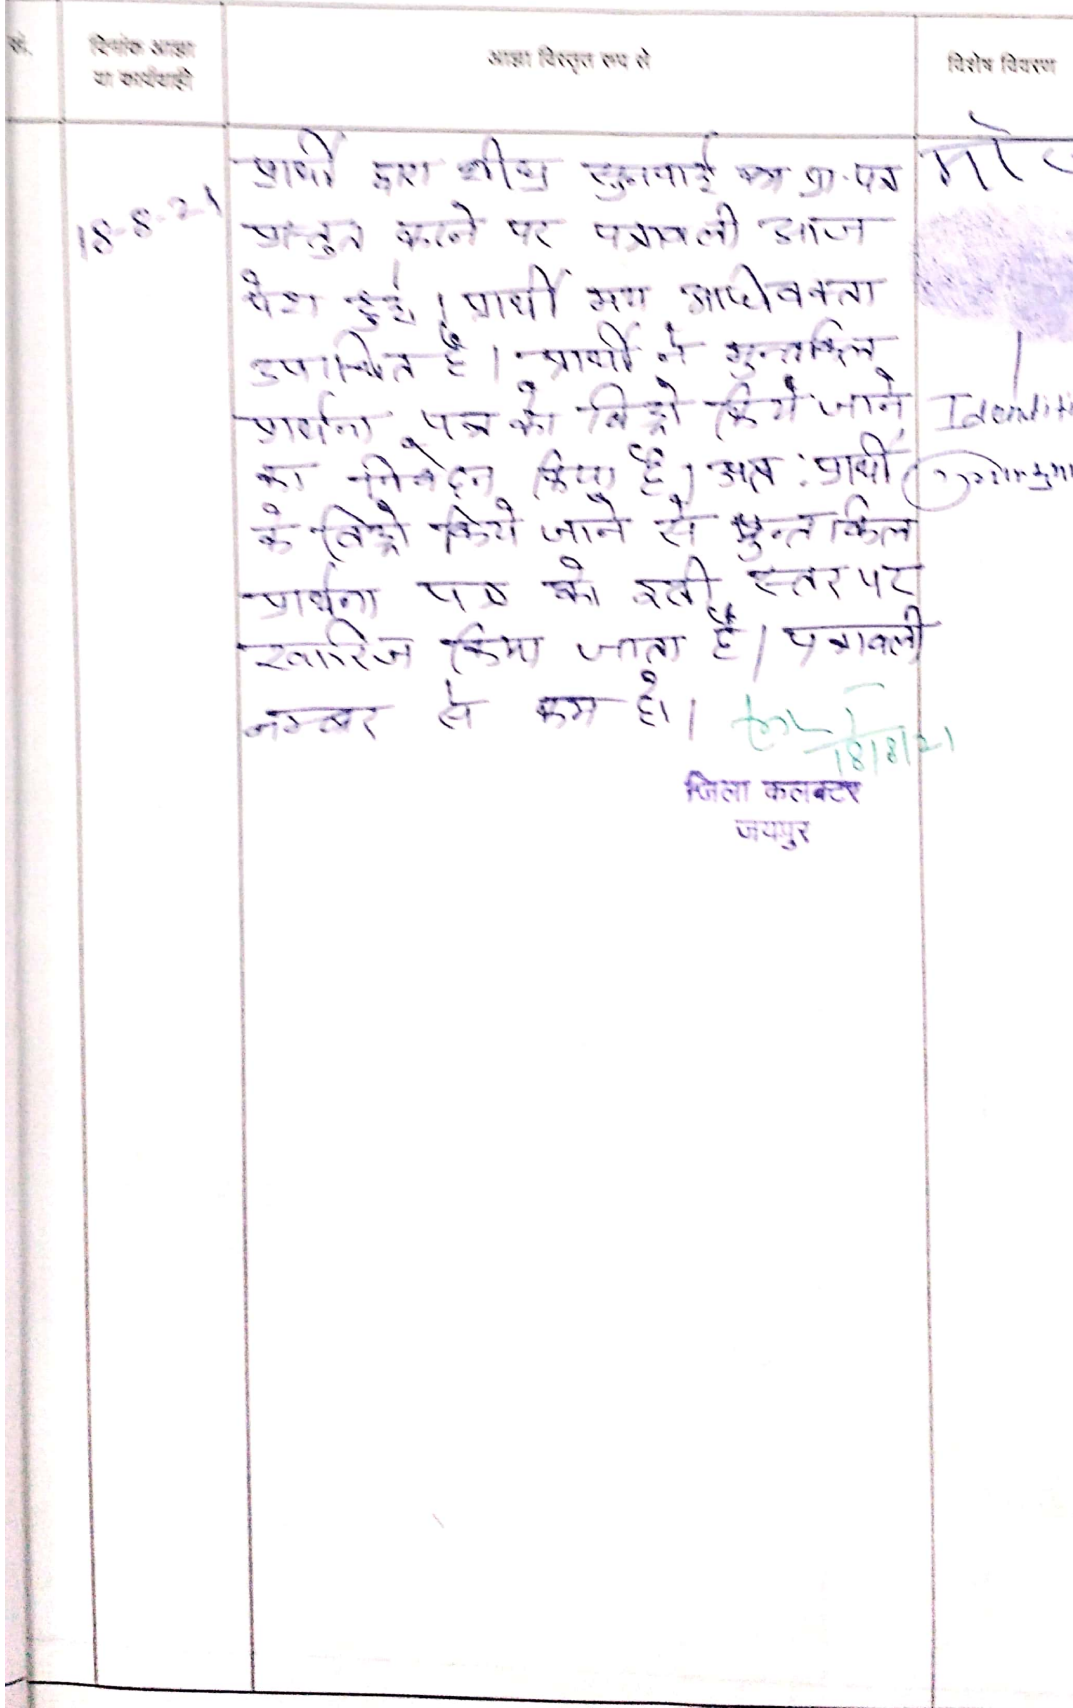 सं.
दिनांक आज्ञा
या कार्यवाही
आज्ञा विस्तृत रूप से
विशेष विवरण
18-8-21
प्रार्थी द्वारा शीघ्र सुनवाई का प्रा.पत्र
प्रस्तुत करने पर पत्रावली आज
पेश हुई। प्रार्थी मय अधिवक्ता
उपस्थित है। प्रार्थी ने मुन्तकिल
प्रार्थना पत्र को विड्रो किये जाने
का निवेदन किया है। अत: प्रार्थी
के विड्रो किये जाने से मुन्तकिल
प्रार्थना पत्र को इसी स्तर पर
खारिज किया जाता है। पत्रावली
नम्बर से कम हो।
18/8/21
जिला कलक्टर
जयपुर